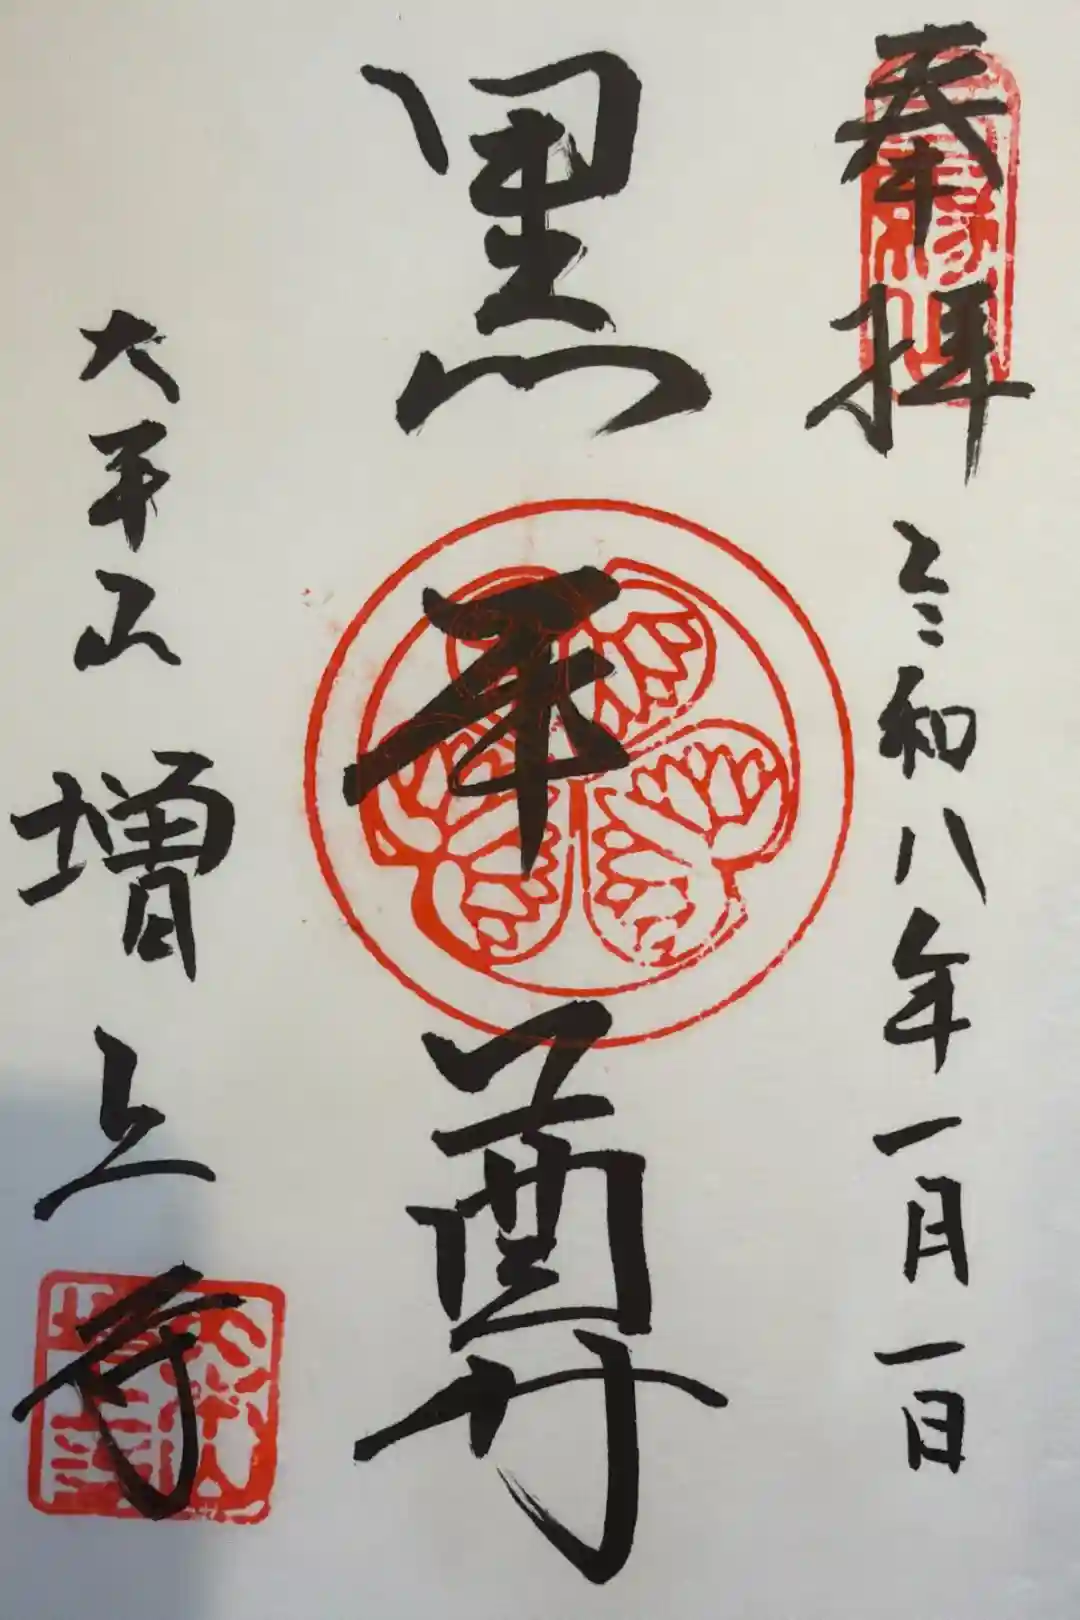 奉拝 令和八年一月一日
三縁山
黒本尊
大本山 増上寺